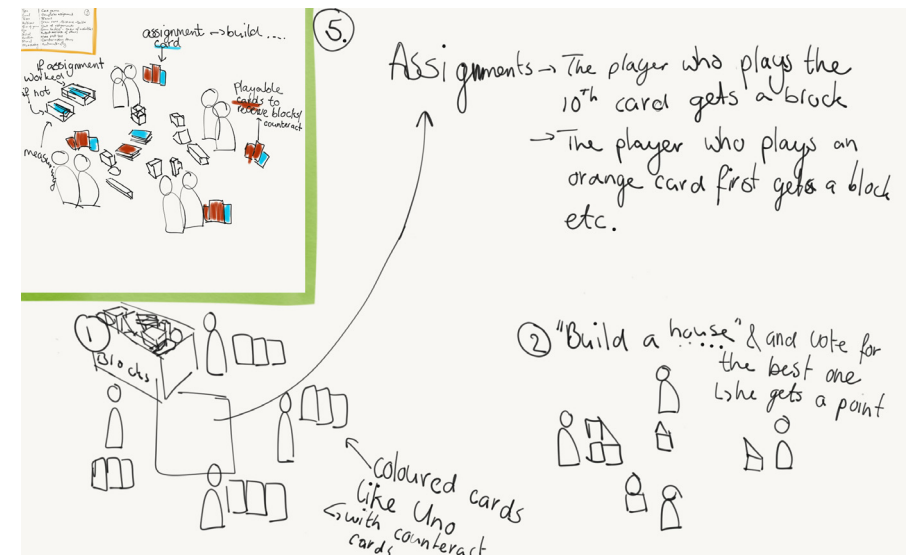 assignment → build ....
card
if assignment
worked
if not
Playable
cards to
remove blocks/
counteract
5.
Assignments → The player who plays the
10th card gets a block
→ The player who plays an
orange card first gets a block
etc.
1
Blocks
coloured cards
like Uno
with counteract
cards
2 "Build a house" & and vote for
.....
the best one
↳ he gets a point